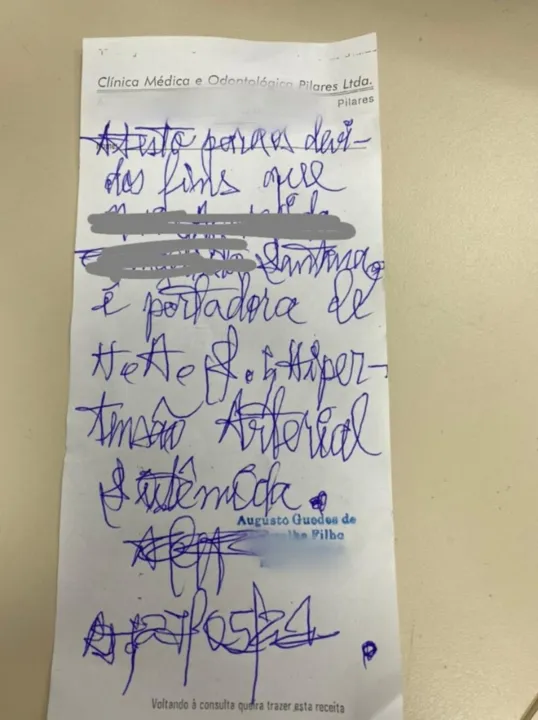 Clínica Médica e Odontológica Pilares Ltda.
Pilares
Atesto para os devi-
dos fins que
Santana,
é portadora de
H.A.S., Hiper-
tensão Arterial
Sistêmica.
Augusto Guedes de
Filho
Voltando à consulta queira trazer esta receita